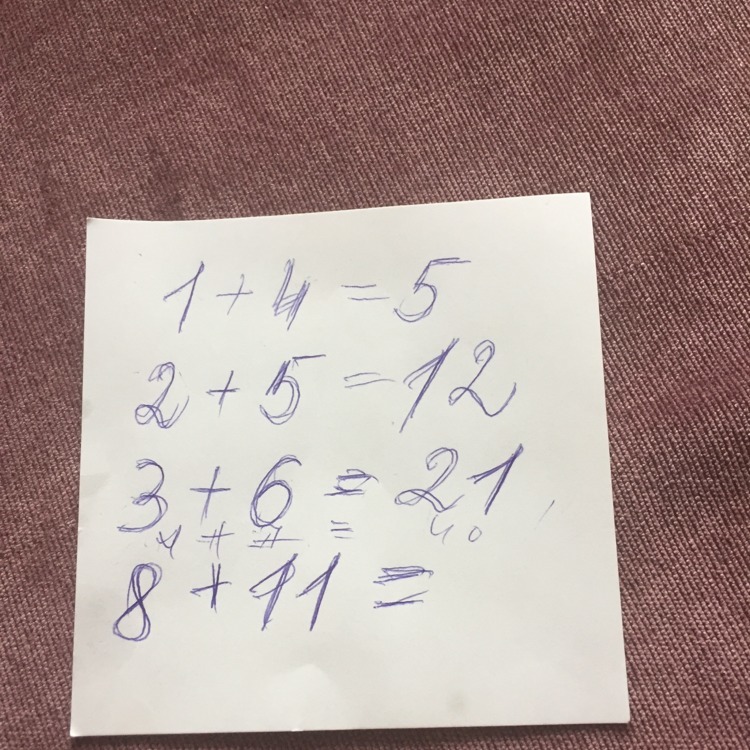 1 + 4 = 5
2 + 5 = 12
3 + 6 = 21
4 + 7 = 40
8 + 11 =